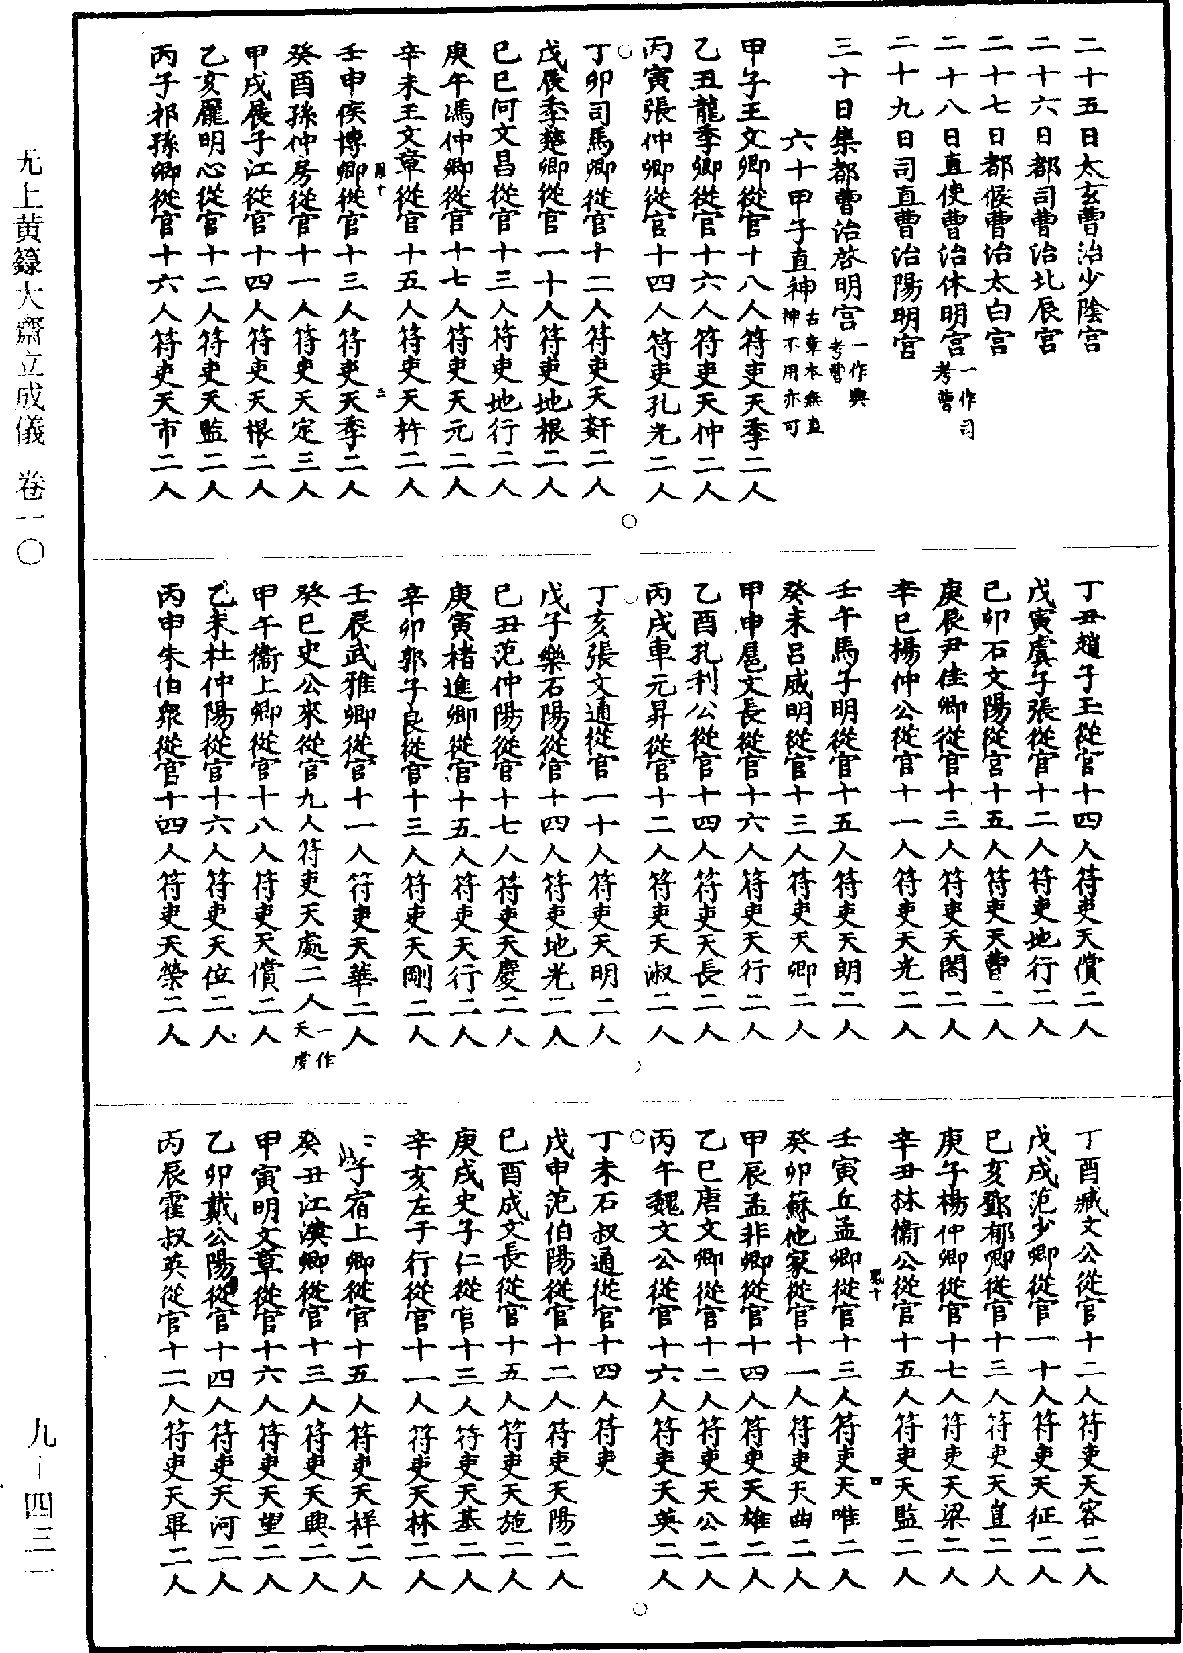 二十五日太玄曹治少陰宮
二十六日都司曹治北辰宮
二十七日都候曹治太白宮
二十八日直使曹治休明宮一作司考曹
二十九日司直曹治陽明宮
三十日集都曹治啓明宮一作典考曹
六十甲子直神古章本無直神不用亦可
甲子王文卿從官十八人符吏天季二人
乙丑龍季卿從官十六人符吏天仲二人
丙寅張仲卿從官十四人符吏孔光二人
丁卯司馬卿從官十二人符吏天奸二人
戊辰季楚卿從官一十人符吏地根二人
己巳何文昌從官十三人符吏地行二人
庚午馮仲卿從官十七人符吏天元二人
辛未王文章從官十五人符吏天杵二人
壬申侯博卿從官十三人符吏天季二人
癸酉孫仲房從官十一人符吏天定三人
甲戌展子江從官十四人符吏天根二人
乙亥龐明心從官十二人符吏天監二人
丙子祁孫卿從官十六人符吏天市二人
丁丑趙子玉從官十四人符吏天償二人
戊寅虞子張從官十二人符吏地行二人
己卯石文陽從官十五人符吏天曹二人
庚辰尹佳卿從官十三人符吏天閣二人
辛巳楊仲公從官十一人符吏天光二人
壬午馬子明從官十五人符吏天朗二人
癸未呂威明從官十三人符吏天卿二人
甲申扈文長從官十六人符吏天行二人
乙酉孔利公從官十四人符吏天長二人
丙戌車元昇從官十二人符吏天淑二人
丁亥張文通從官一十人符吏天明二人
戊子樂石陽從官十四人符吏地光二人
己丑范仲陽從官十七人符吏天慶二人
庚寅楮進卿從官十五人符吏天行二人
辛卯郭子良從官十三人符吏天剛二人
壬辰武雅卿從官十一人符吏天華二人
癸巳史公來從官九人符吏天處二人一作天虛
甲午衞上卿從官十八人符吏天償二人
乙未杜仲陽從官十六人符吏天位二人
丙申朱伯衆從官十四人符吏天榮二人
丁酉臧文公從官十二人符吏天容二人
戊戌范少卿從官一十人符吏天征二人
己亥鄧郁卿從官十三人符吏天直二人
庚子楊仲卿從官十七人符吏天梁二人
辛丑林衞公從官十五人符吏天監二人
壬寅丘孟卿從官十三人符吏天唯二人
癸卯蘇他家從官十一人符吏天曲二人
甲辰孟非卿從官十四人符吏天雄二人
乙巳唐文卿從官十二人符吏天公二人
丙午魏文公從官十六人符吏天英二人
丁未石叔通從官十四人符吏
戊申范伯陽從官十二人符吏天陽二人
己酉成文長從官十五人符吏天施二人
庚戌史子仁從官十三人符吏天基二人
辛亥左子行從官十一人符吏天林二人
子宿上卿從官十五人符吏天祥二人
癸丑江漢卿從官十三人符吏天典二人
甲寅明文章從官十六人符吏天望二人
乙卯戴公陽從官十四人符吏天河二人
丙辰霍叔英從官十二人符吏天畢二人
无上黄籙大齋立成儀 卷一〇
九－四三一